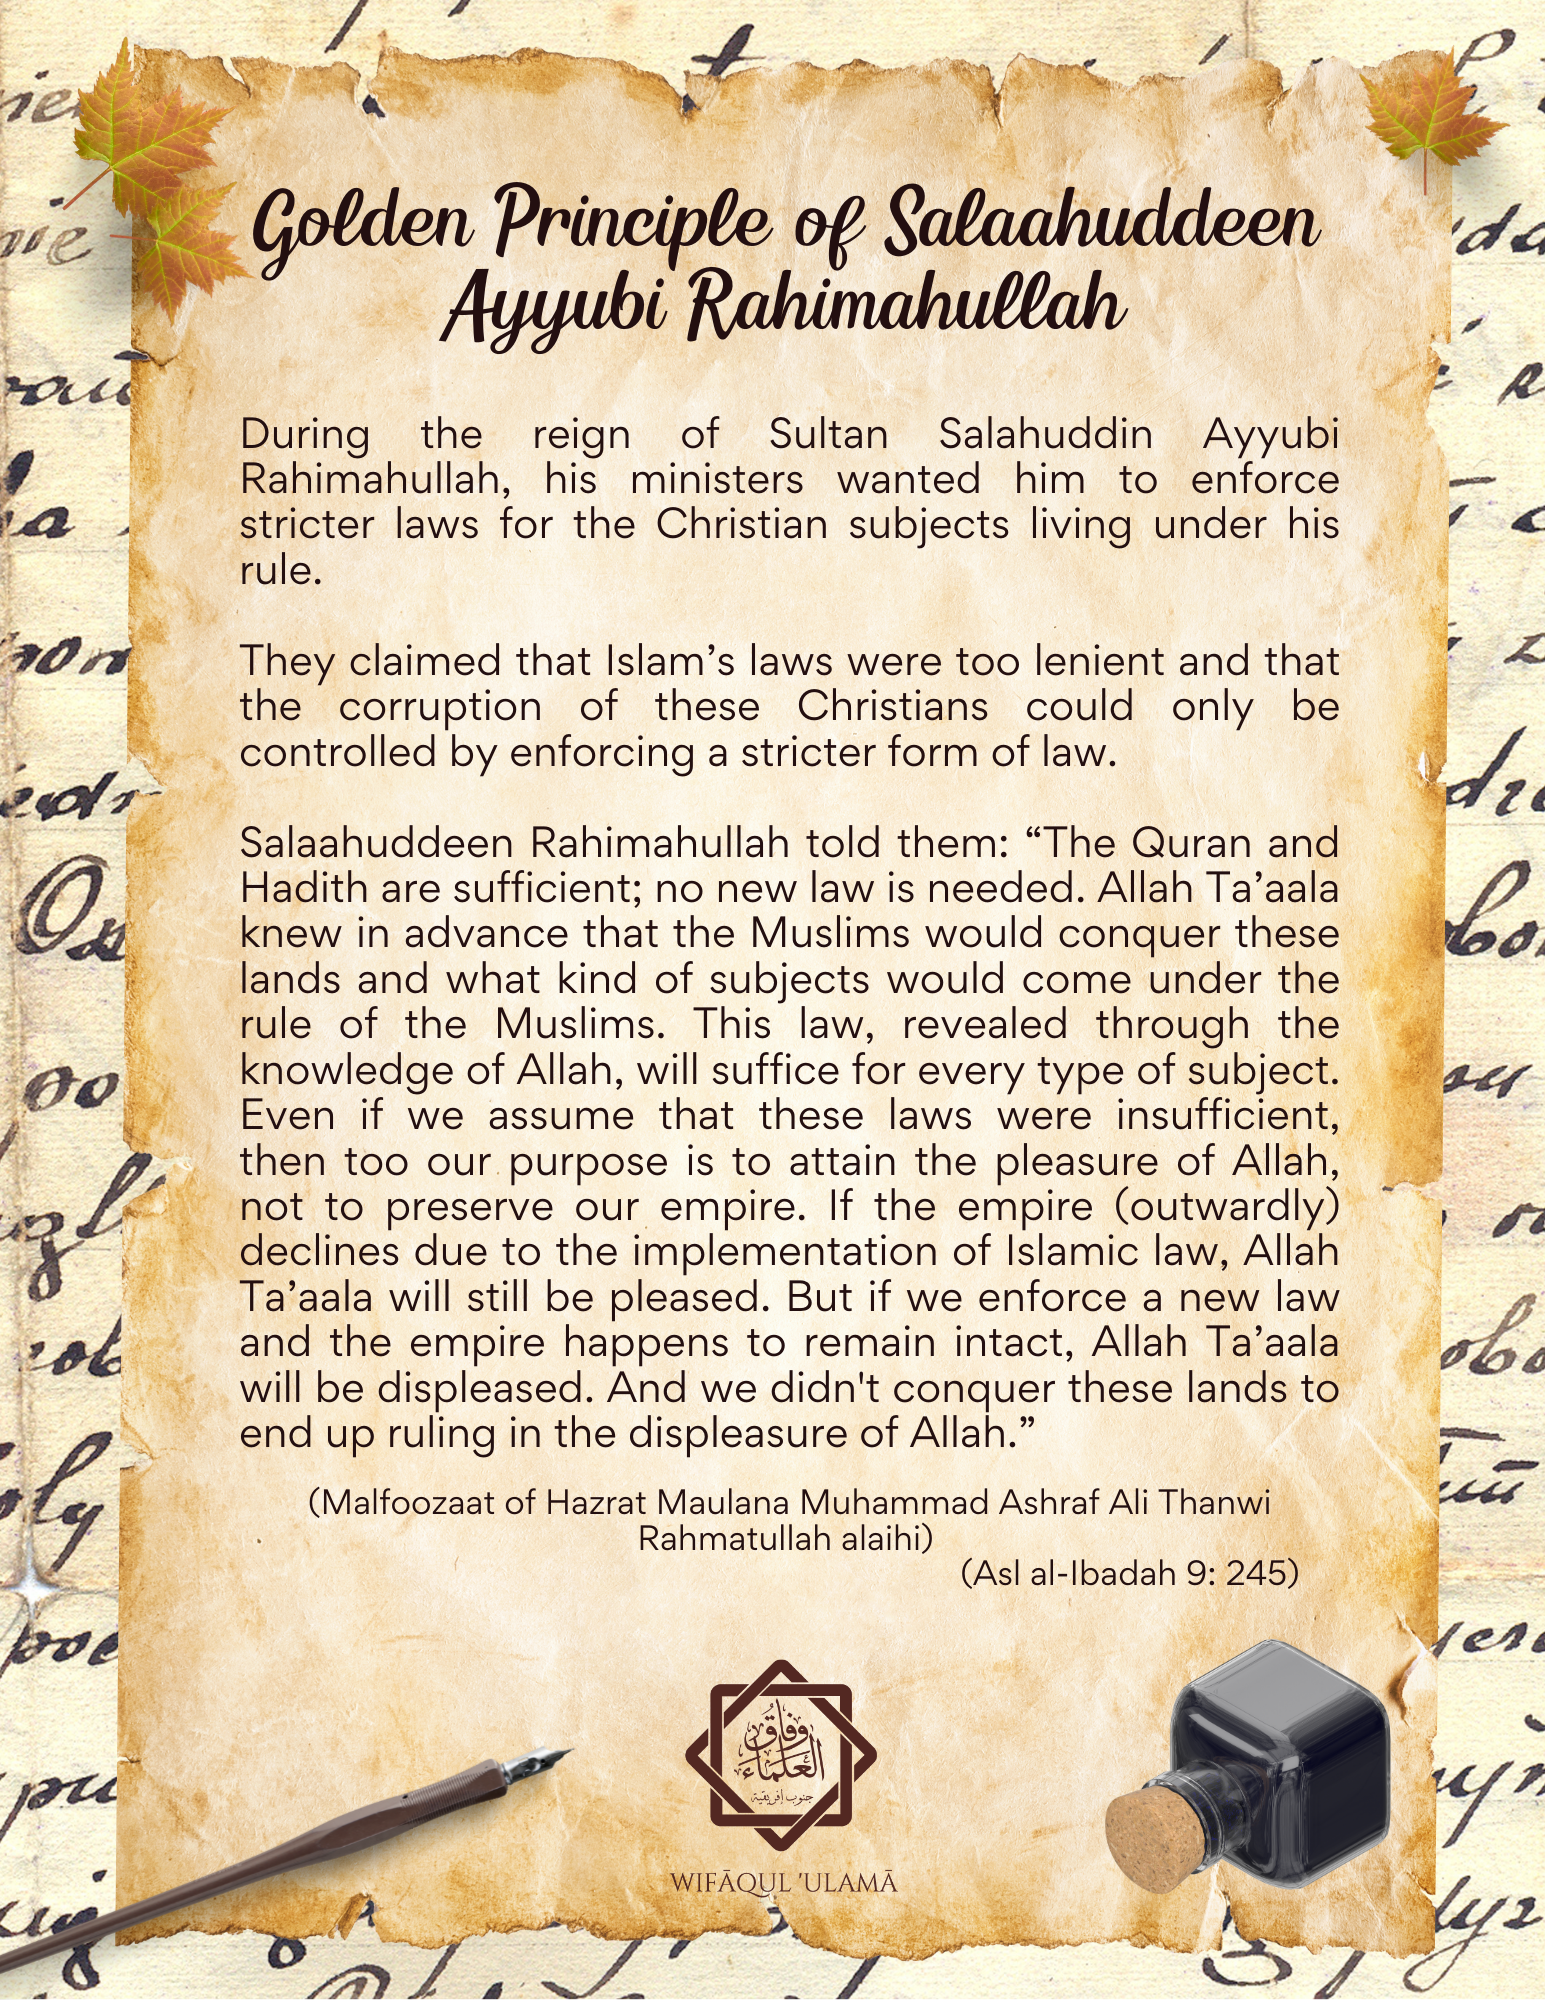 Golden Principle of Salaahuddeen
Ayyubi Rahimahullah
During the reign of Sultan Salahuddin Ayyubi
Rahimahullah, his ministers wanted him to enforce
stricter laws for the Christian subjects living under his
rule.
They claimed that Islam’s laws were too lenient and that
the corruption of these Christians could only be
controlled by enforcing a stricter form of law.
Salaahuddeen Rahimahullah told them: “The Quran and
Hadith are sufficient; no new law is needed. Allah Ta’aala
knew in advance that the Muslims would conquer these
lands and what kind of subjects would come under the
rule of the Muslims. This law, revealed through the
knowledge of Allah, will suffice for every type of subject.
Even if we assume that these laws were insufficient,
then too our purpose is to attain the pleasure of Allah,
not to preserve our empire. If the empire (outwardly)
declines due to the implementation of Islamic law, Allah
Ta’aala will still be pleased. But if we enforce a new law
and the empire happens to remain intact, Allah Ta’aala
will be displeased. And we didn't conquer these lands to
end up ruling in the displeasure of Allah.”
(Malfoozaat of Hazrat Maulana Muhammad Ashraf Ali Thanwi
Rahmatullah alaihi)
(Asl al-Ibadah 9: 245)
وفاق
العلماء
جنوب إفريقية
WIFĀQUL 'ULAMĀ